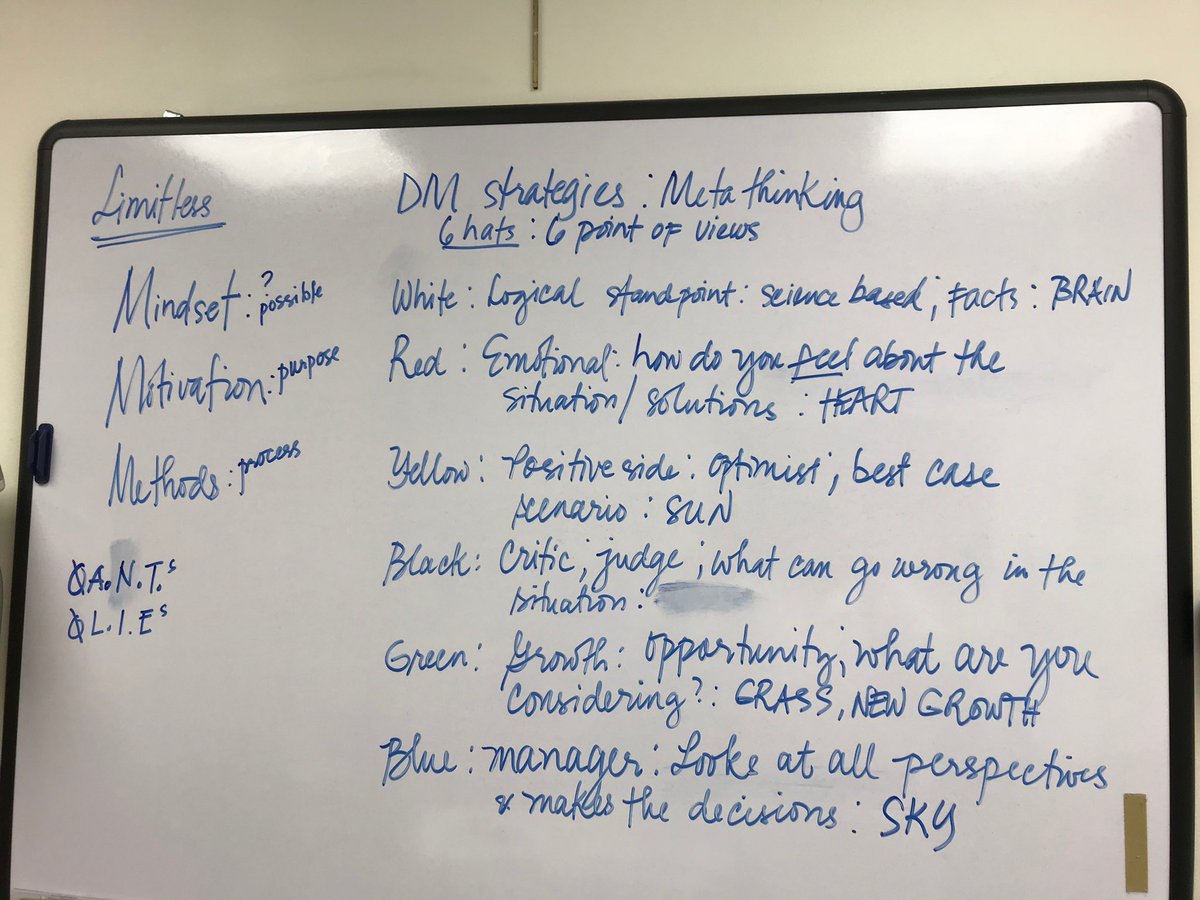 Limitless
Mindset: ? possible
Motivation: purpose
Methods: process
A.N.T.s
L.I.Es
DM strategies: Meta thinking
6 hats: 6 point of views
White: Logical standpoint: science based; Facts: BRAIN
Red: Emotional: how do you feel about the
situation/solutions: HEART
Yellow: Positive side: optimist; best case
scenario: SUN
Black: Critic; judge; what can go wrong in the
situation:
Green: Growth: opportunity; what are you
considering?: GRASS, NEW GROWTH
Blue: manager: Looks at all perspectives
& makes the decisions: SKY